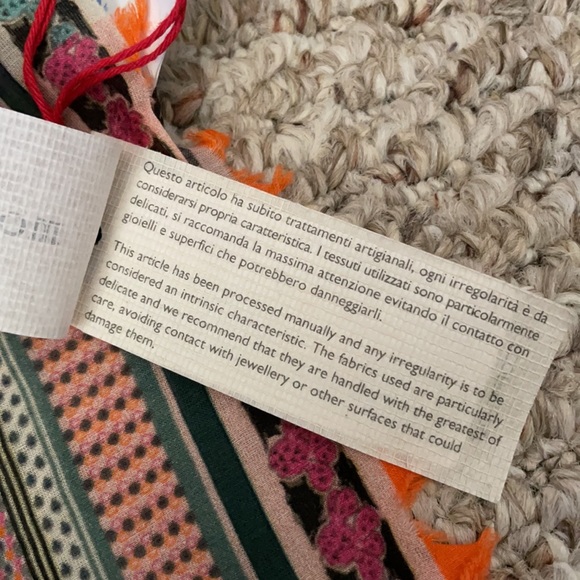 Questo articolo ha subito trattamenti artigianali, ogni irregolarità è da
considerarsi propria caratteristica. I tessuti utilizzati sono particolarmente
delicati, si raccomanda la massima attenzione evitando il contatto con
gioielli e superfici che potrebbero danneggiarli.
This article has been processed manually and any irregularity is to be
considered an intrinsic characteristic. The fabrics used are particularly
delicate and we recommend that they are handled with the greatest of
care, avoiding contact with jewellery or other surfaces that could
damage them.